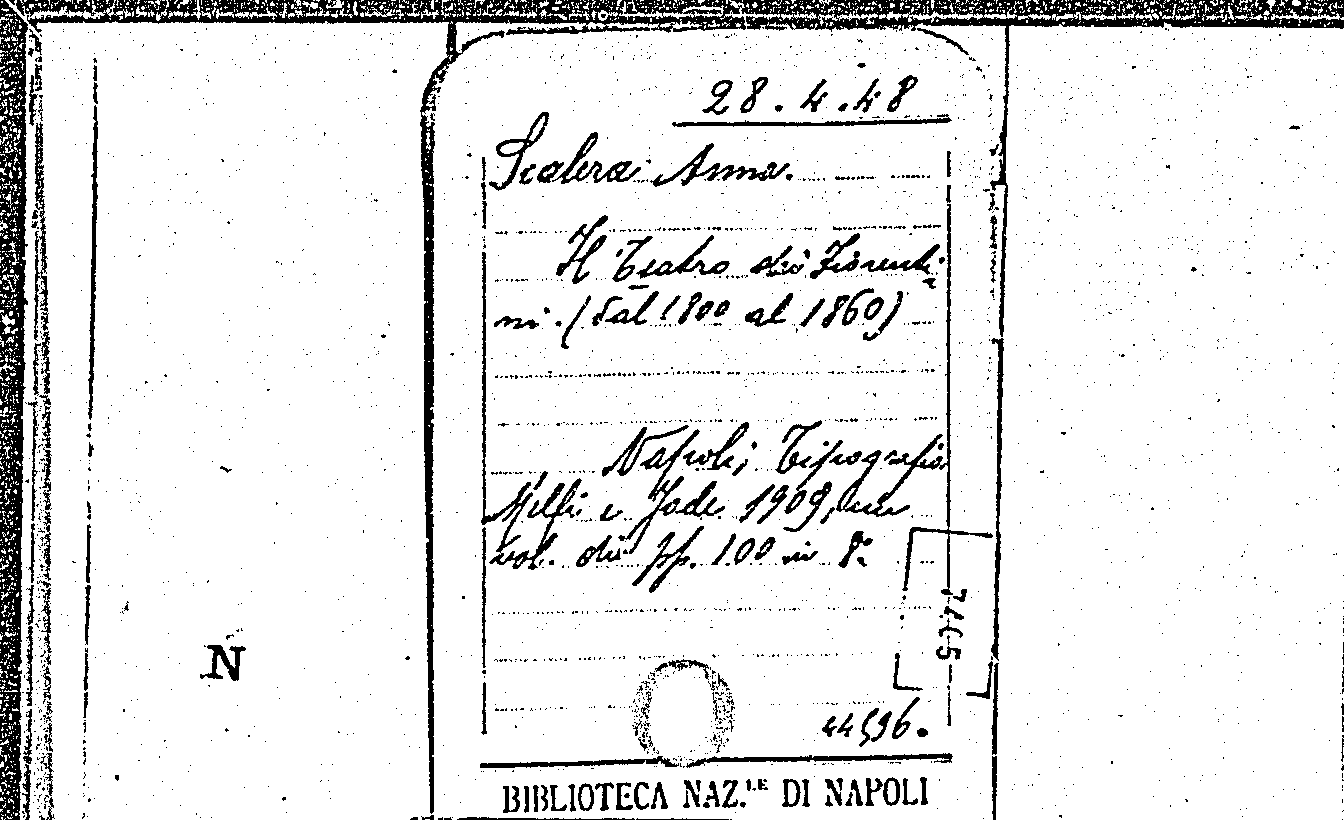 28.4.48
Scalera Anna.
Il Teatro dei Fiorenti-
ni. (dal 1800 al 1860)
Napoli; Tipografia
Melfi e Jode 1909, un
vol. di pp. 100 in 8º
7405
N
44596.
BIBLIOTECA NAZ.LE DI NAPOLI